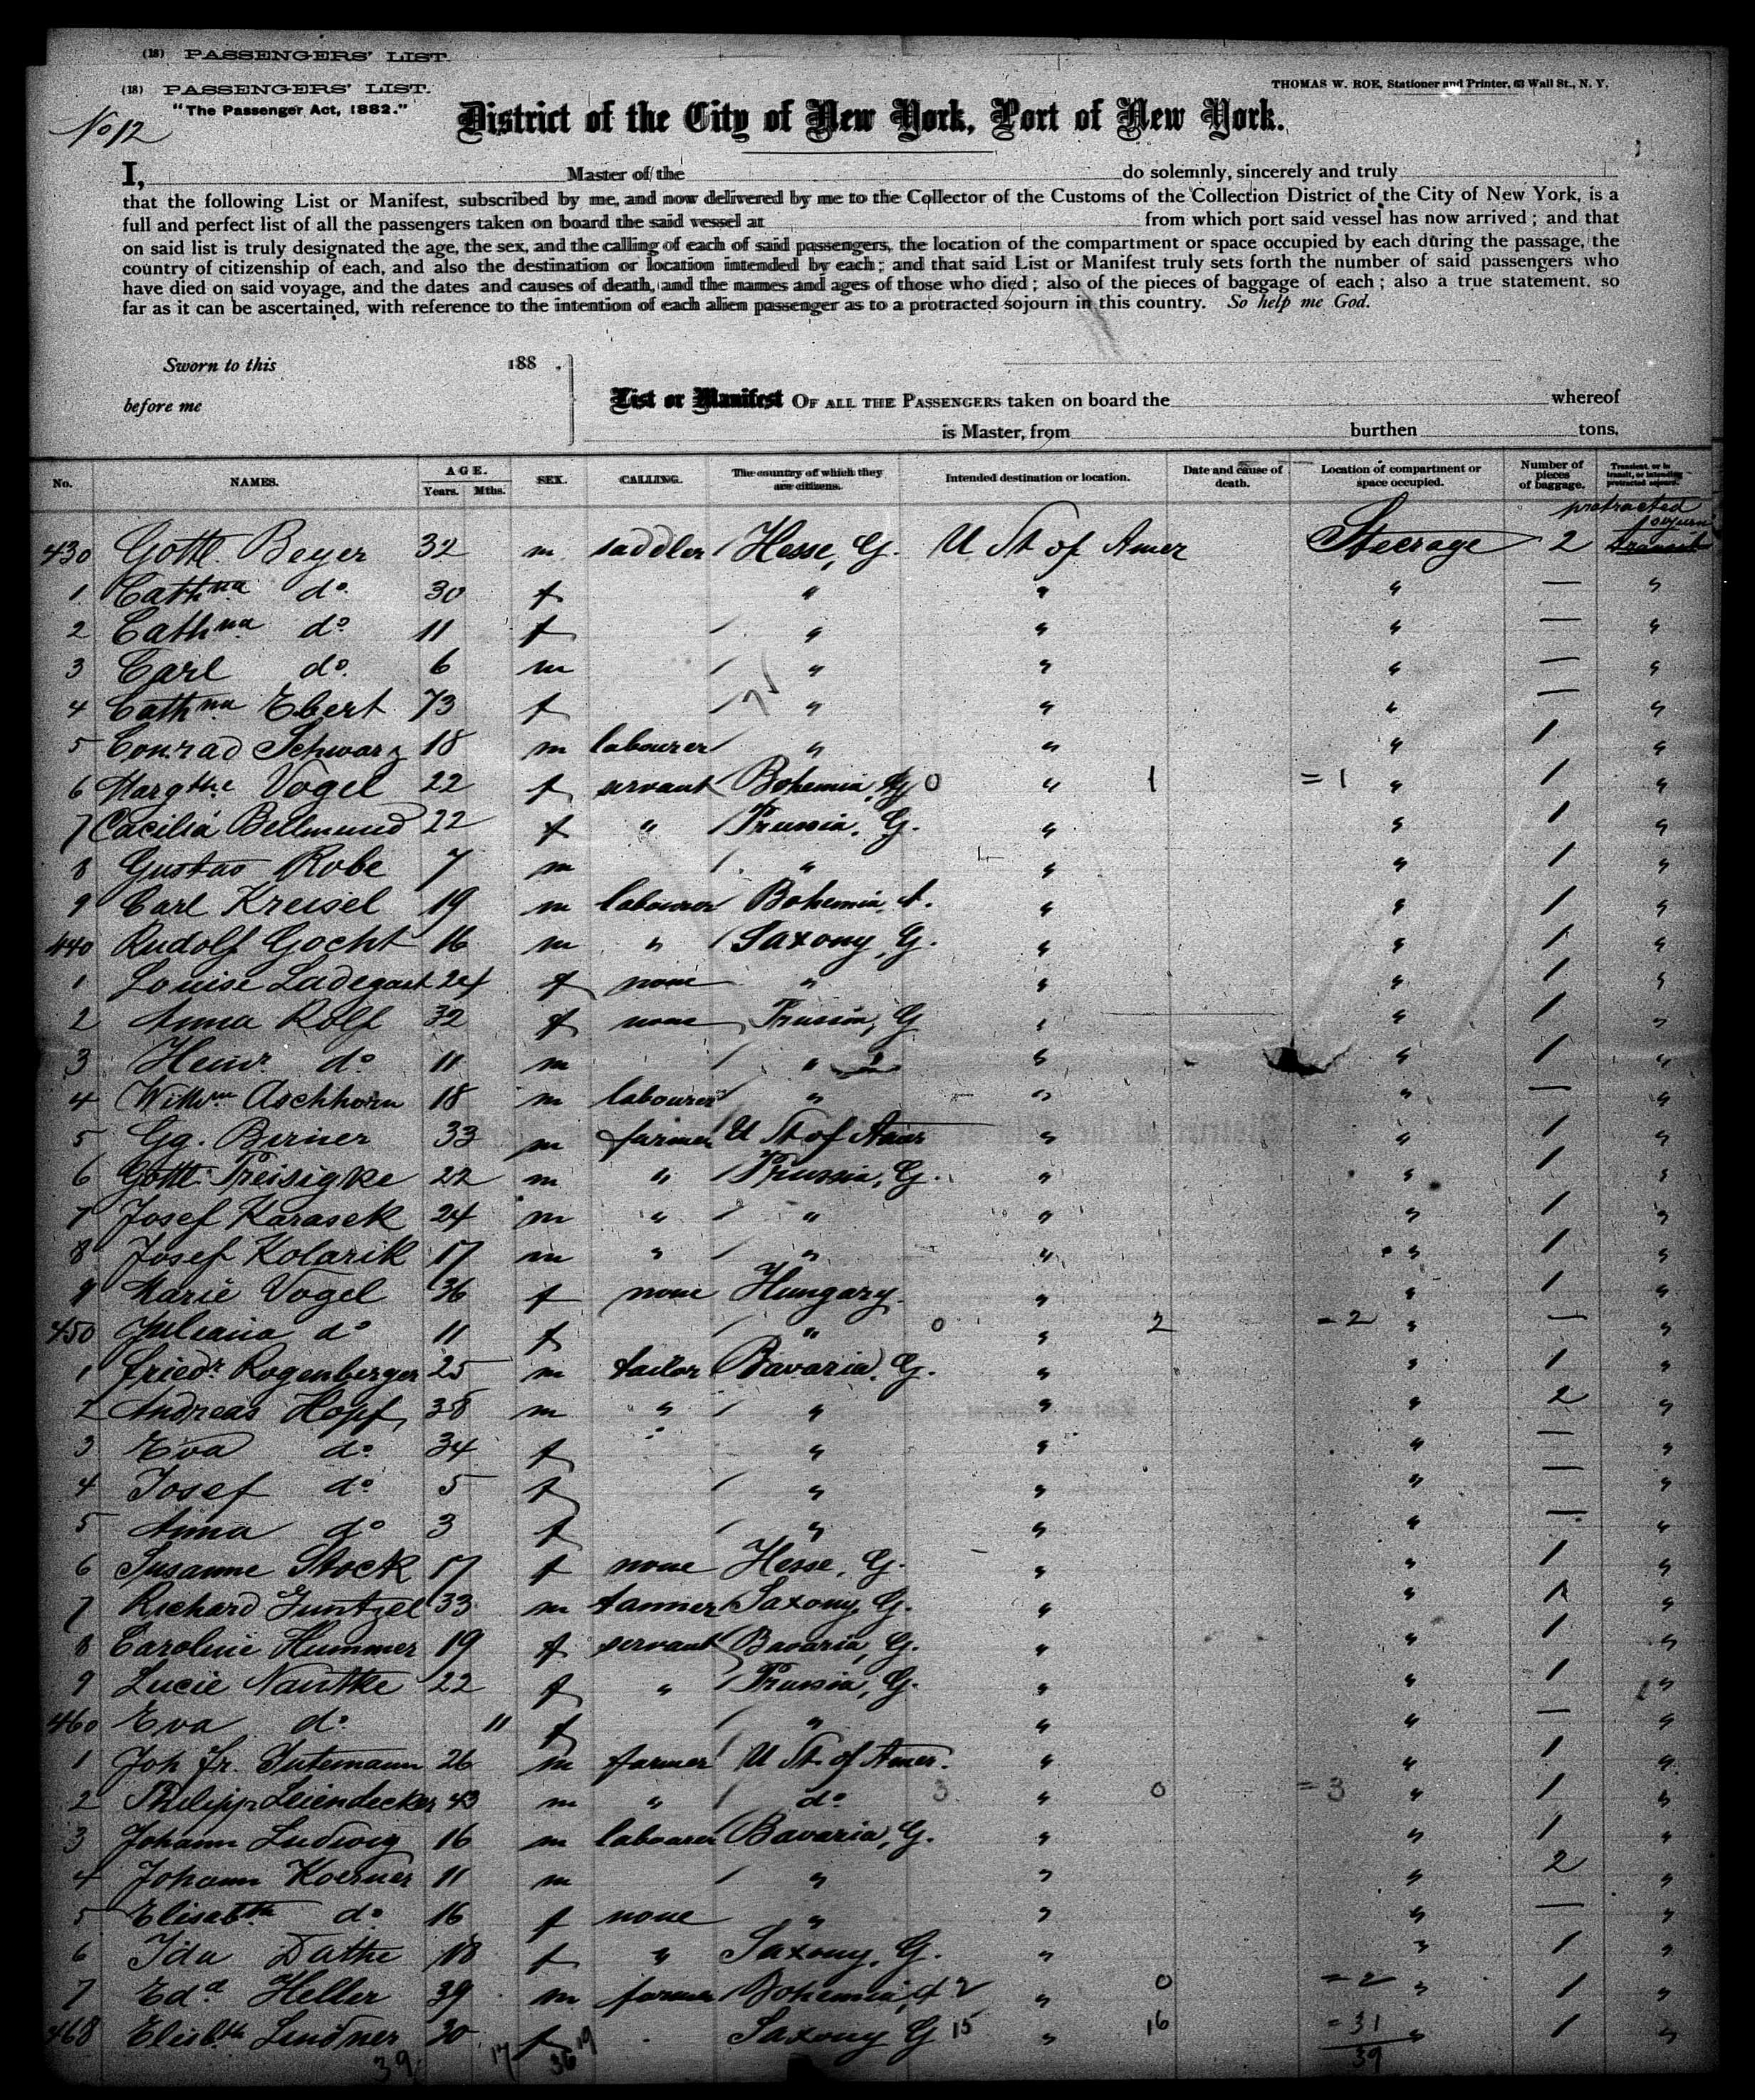 (18) PASSENGERS' LIST.
(18) PASSENGERS' LIST. THOMAS W. ROE, Stationer and Printer, 63 Wall St., N. Y.
"The Passenger Act, 1882."
No 12
District of the City of New York, Port of New York.
I, Master of the do solemnly, sincerely and truly
that the following List or Manifest, subscribed by me, and now delivered by me to the Collector of the Customs of the Collection District of the City of New York, is a
full and perfect list of all the passengers taken on board the said vessel at from which port said vessel has now arrived; and that
on said list is truly designated the age, the sex, and the calling of each of said passengers, the location of the compartment or space occupied by each during the passage, the
country of citizenship of each, and also the destination or location intended by each; and that said List or Manifest truly sets forth the number of said passengers who
have died on said voyage, and the dates and causes of death, and the names and ages of those who died; also of the pieces of baggage of each; also a true statement, so
far as it can be ascertained, with reference to the intention of each alien passenger as to a protracted sojourn in this country. So help me God.
Sworn to this 188 .
before me
List or Manifest OF ALL THE PASSENGERS taken on board the whereof
is Master, from burthen tons.
No. NAMES. AGE. Years. Mths. SEX. CALLING. The country of which they are citizens. Intended destination or location. Date and cause of death. Location of compartment or space occupied. Number of pieces of baggage. Transient, or in transit, or intending protracted sojourn.
protracted sojourn
430 Gottl. Beyer 32 m saddler Hesse, G. U St of Amer Steerage 2 transit
1 Cathna do 30 f " " " — "
2 Cathna do 11 f " " " — "
3 Carl do 6 m " " " — "
4 Cathna Ebert 73 f " " " — "
5 Conrad Schwarz 18 m labourer " " " 1 "
6 Margthe Vogel 22 f servant Bohemia, 0 " 1 = 1 " 1 "
7 Cacilia Bellmund 22 f " Prussia, G. " " 1 "
8 Gustav Robe 7 m " " " 1 "
9 Carl Kreisel 19 m labourer Bohemia, A. " " 1 "
440 Rudolf Gocht 16 m " Saxony, G. " " 1 "
1 Louise Ladegast 24 f none " " " 1 "
2 Anna Rolf 32 f none Prussia, G " " 1 "
3 Heinr. do 11 m " " " 1 "
4 Willm Aschhorn 18 m labourer " " " — "
5 Gg. Birner 33 m farmer U St of Amer " " 1 "
6 Gottl Preisigke 22 m " Prussia, G. " " 1 "
7 Josef Karasek 24 m " " " " 1 "
8 Josef Kolarik 17 m " " " " 1 "
9 Marie Vogel 36 f none Hungary " " 1 "
450 Juliana do 11 f " 0 " 2 = 2 " — "
1 Friedr. Rogenberger 25 m tailor Bavaria, G. " " 1 "
2 Andreas Hopf 38 m " " " " 2 "
3 Eva do 34 f " " " — "
4 Josef do 5 f " " " — "
5 Anna do 3 f " " " — "
6 Susanne Stock 17 f none Hesse, G. " " 1 "
7 Richard Juntzel 33 m tanner Saxony, G. " " 1 "
8 Caroline Hummer 19 f servant Bavaria, G. " " 1 "
9 Lucie Nautke 22 f " Prussia, G. " " 1 "
460 Eva do 11 f " " " — "
1 Joh Fr. Sutemann 26 m farmer U St of Amer. " " 1 "
2 Philipp Leiendecker 43 m " do 3 " 0 = 3 " 1 "
3 Johann Ludwig 16 m labourer Bavaria, G. " " 1 "
4 Johann Koerner 11 m " " " 2 "
5 Elisabth do 16 f none " " " — "
6 Ida Dathe 18 f " Saxony, G. " " 1 "
7 Edd Heller 39 m farmer Bohemia, A 2 " 0 = 2 " 1 "
468 Elisbth Lindner 30 f Saxony G 15 " 16 = 31 " 1 "
39 17 36 19 39